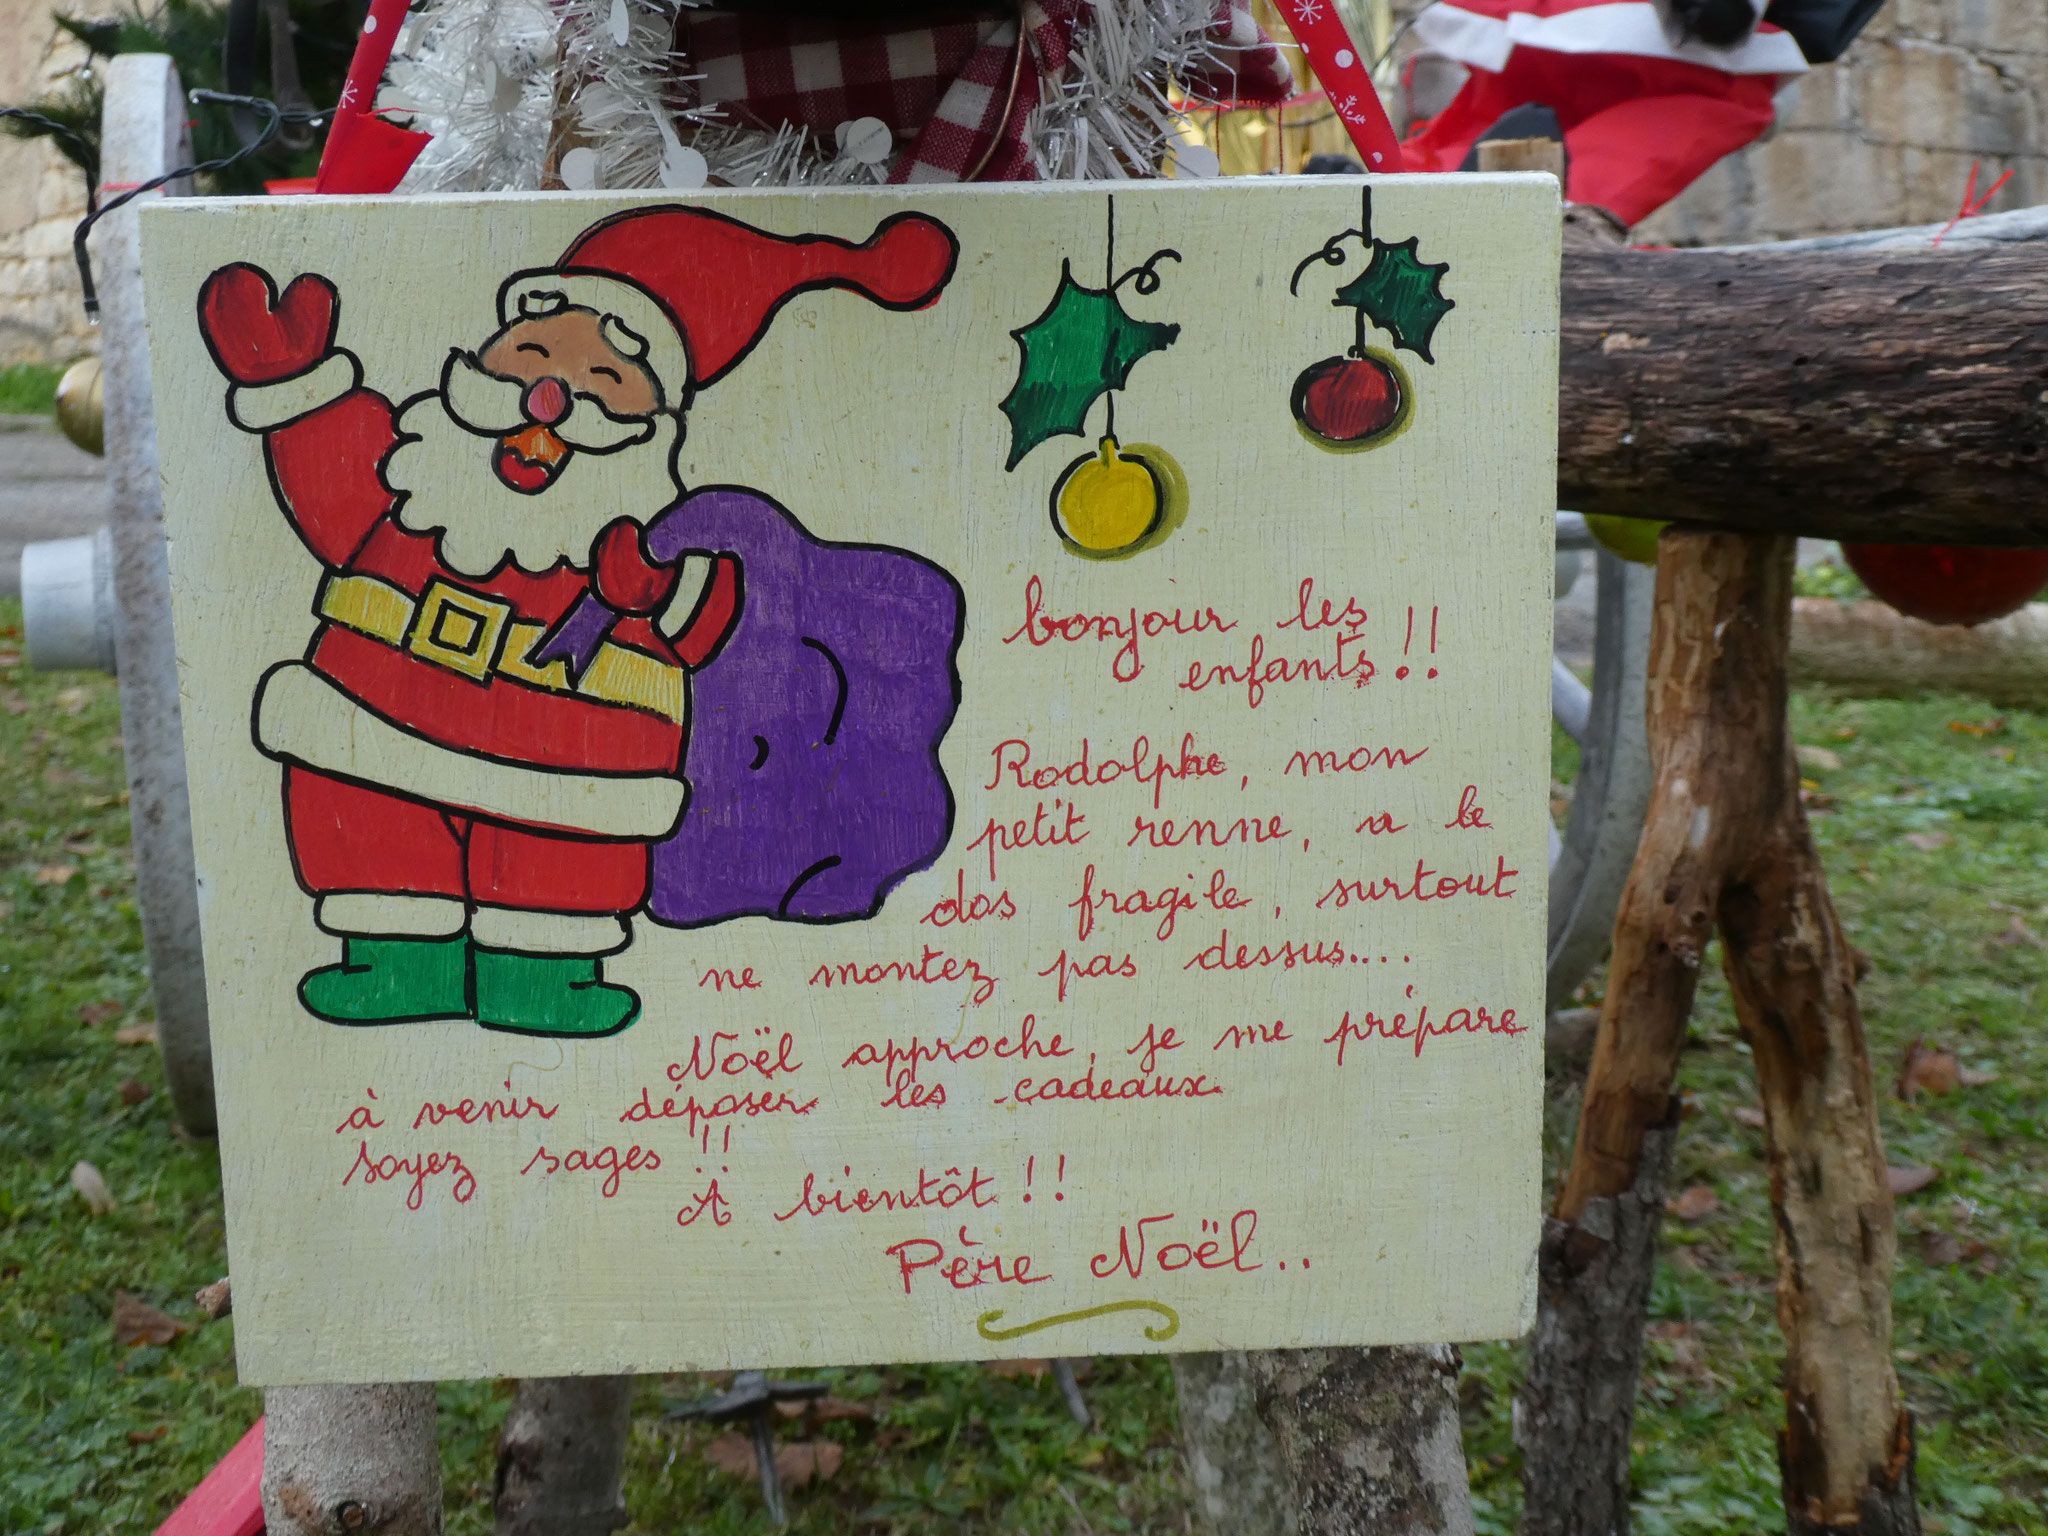 bonjour les
enfants !!
Rodolphe, mon
petit renne, a le
dos fragile, surtout
ne montez pas dessus....
Noël approche, je me prépare
à venir déposer les cadeaux.
soyez sages !!
A bientôt !!
Père Noël..